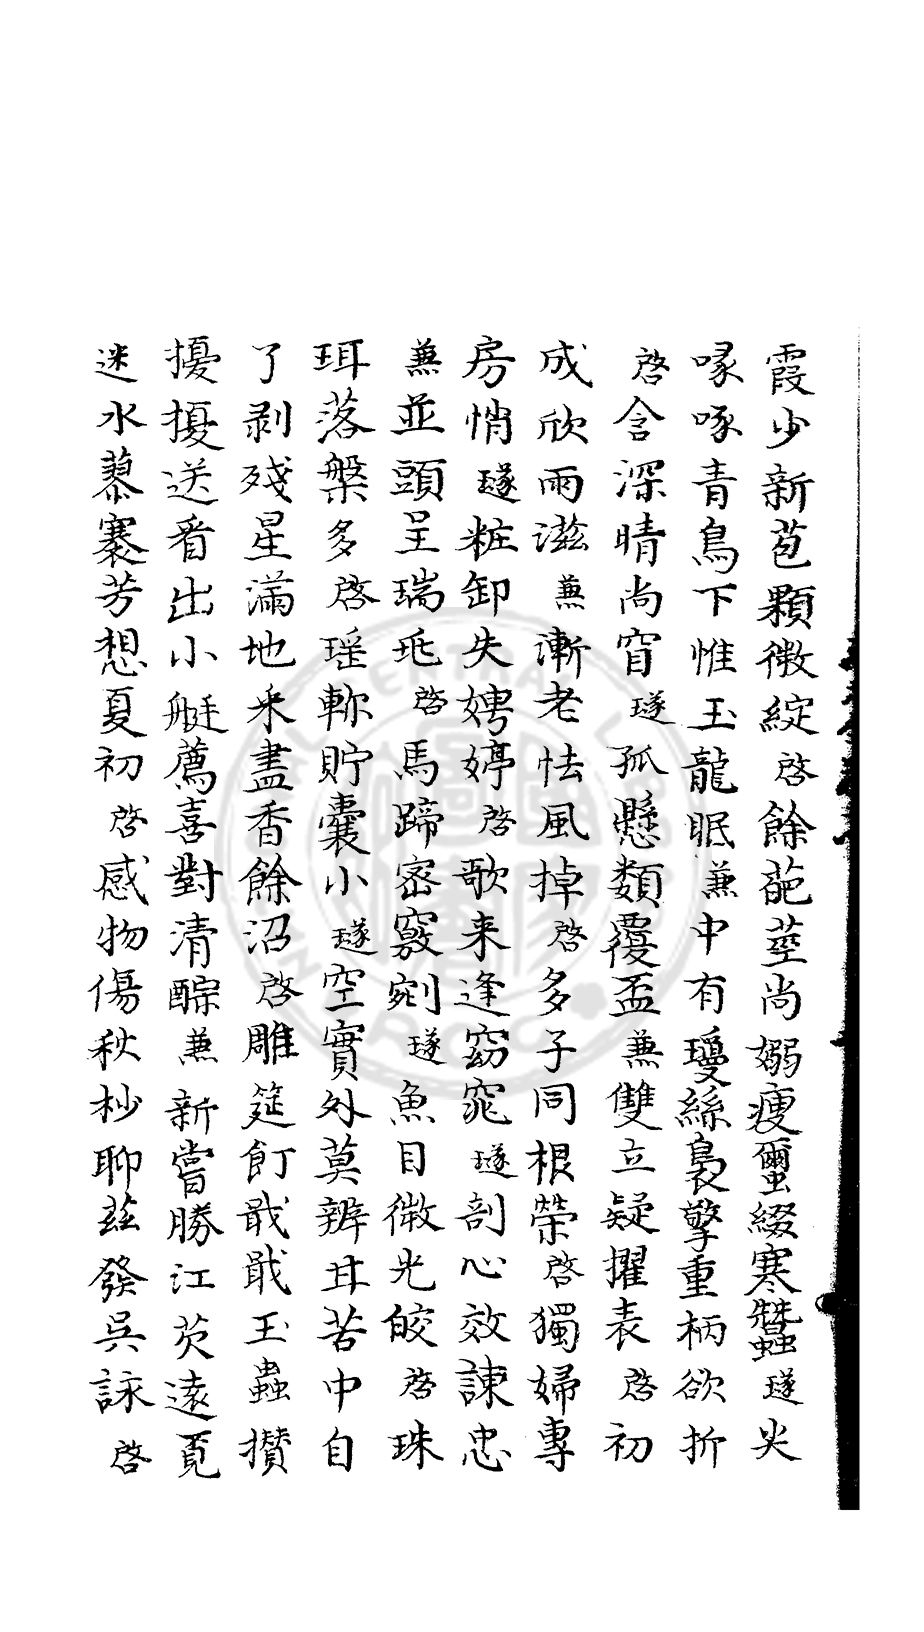 霞少新苞顆微綻啓餘葩莖尚嫋瘦蠒綴寒蠶璲尖
喙啄青鳥下惟玉龍眠兼中有瓊絲裊擎重柄欲折
啓含深晴尚窅璲孤懸類覆盃兼雙立疑擢表啓初
成欣雨滋兼漸老怯風掉啓多子同根榮啓獨婦專
房悄璲粧卸失娉婷啓歌来逢窈窕璲剖心效諌忠
兼並頭呈瑞兆啓馬蹄宻竅剜璲魚目微光皎啓珠
珥落槃多啓瑶軫貯囊小璲空實外莫辨甘苦中自
了剥殘星滿地采盡香餘沼啓雕筵飣戢戢玉蟲攅
擾擾送看出小艇薦喜對清醥兼新嘗勝江芡遠覓
迷水藔褰芳想夏初啓感物傷秋杪聊茲發吳詠啓